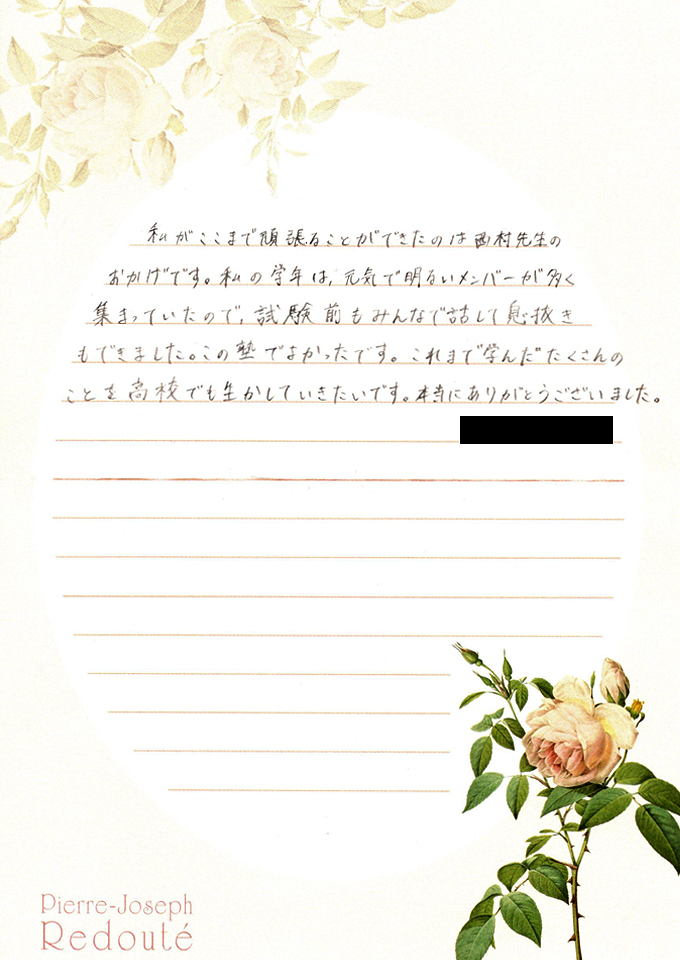 私がここまで頑張ることができたのは西村先生の
おかげです。私の学年は、元気で明るいメンバーが多く
集まっていたので、試験前もみんなで話して息抜き
もできました。この塾でよかったです。これまで学んだたくさんの
ことを高校でも生かしていきたいです。本当にありがとうございました。
Pierre-Joseph
Redouté